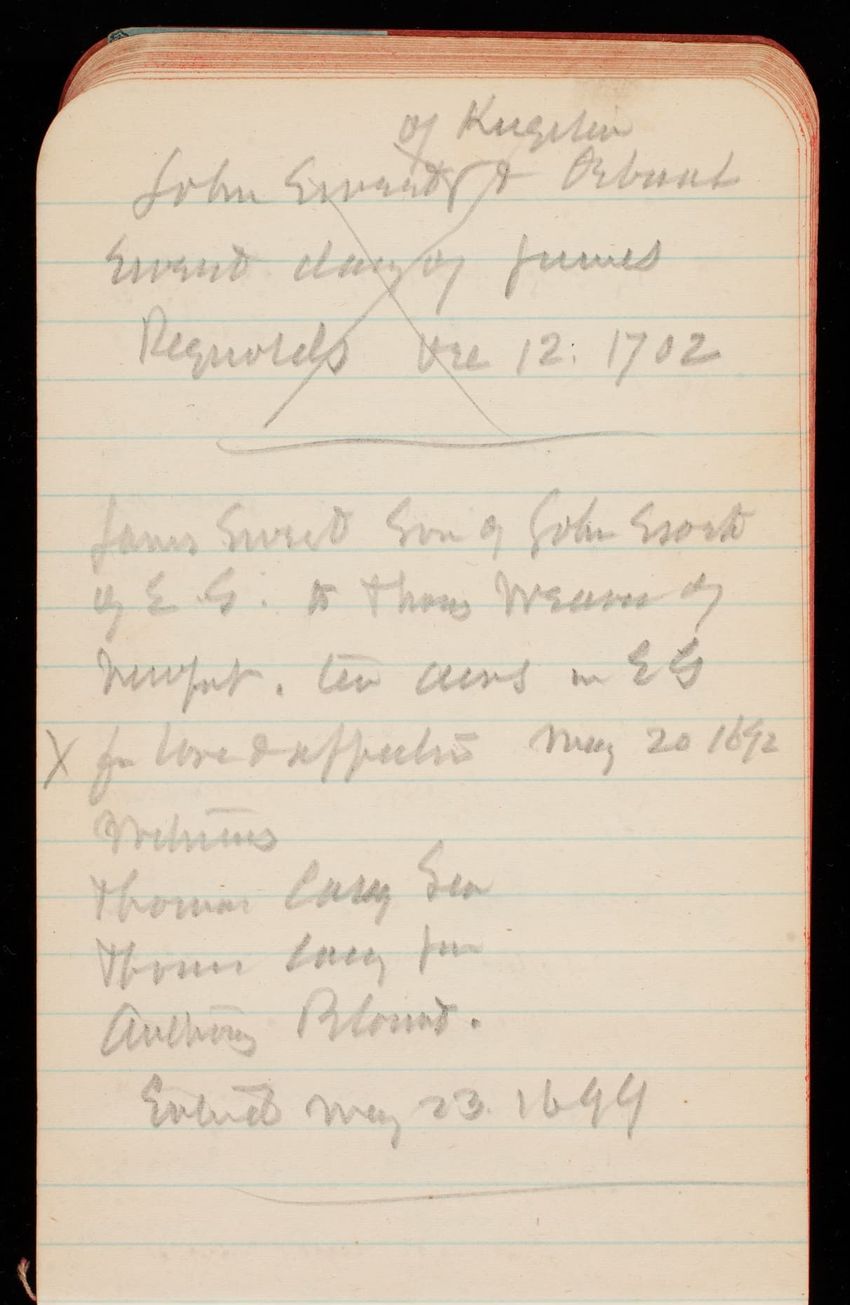 of Kingston
John Sweet & Deborah
Sweet daug of James
Reynolds Dec 12: 1702
James Sweet Son of John Sweet
of E. G. to Thoms Weaver of
Newport. ten acres in E G
X for love & affection May 20 1692
Witness
Thomas Casey Sen
Thomas Casey Jun
Anthony Blount.
May 23. 1699